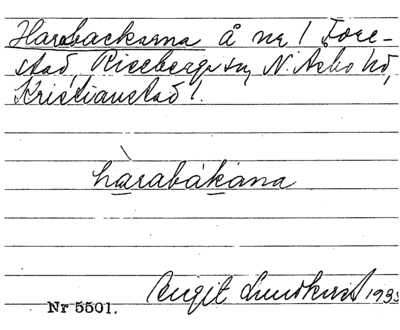 Harabackarna å nr 1 Fore-
stad, Riseberga sn, N. Åsbo hd,
Kristianstad l.
hàrabákana
Birgit Lundkvist 1935
Nr 5501.